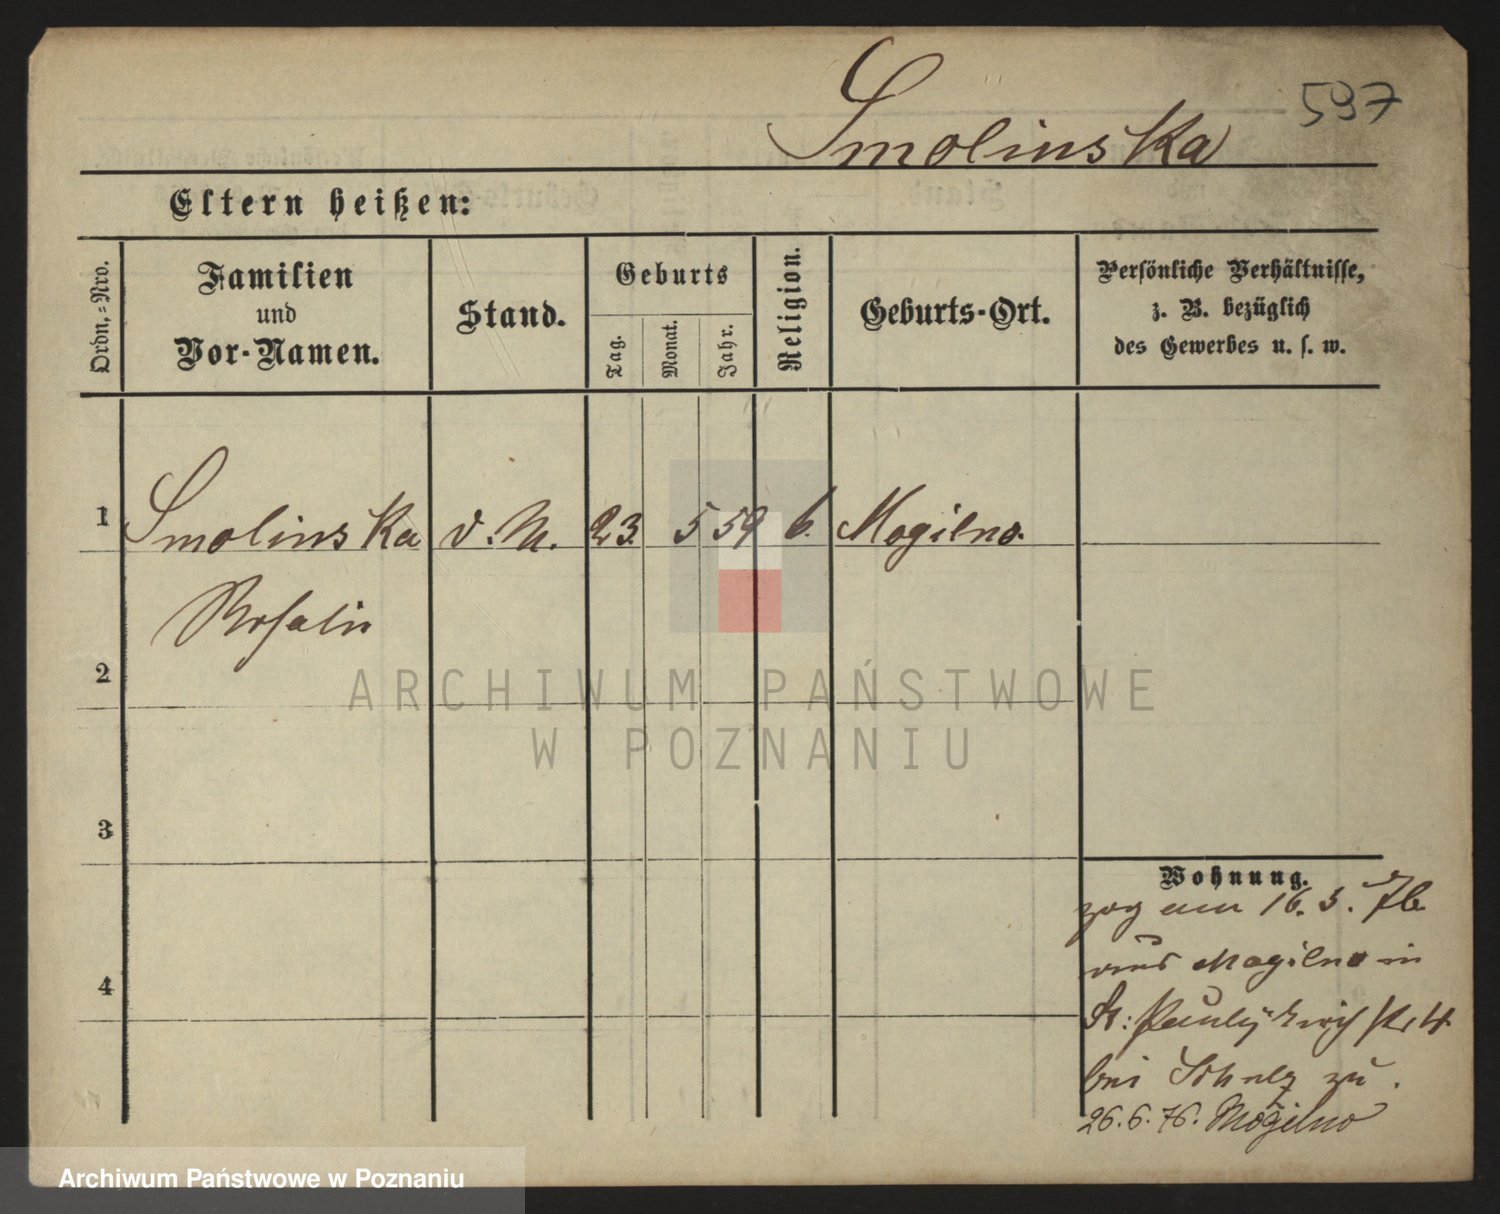 Smolinska
597
Eltern heißen:
Ordn.-Nro.
Familien
und
Vor-Namen.
Stand.
Geburts
Tag.
Monat.
Jahr.
Religion.
Geburts-Ort.
Persönliche Verhältnisse,
z. B. bezüglich
des Gewerbes u. s. w.
1 Smolinska d. M. 23. 5 59 k. Mogilno.
Rosalie
2
3
4
Wohnung.
zog am 16. 3. 76
aus Mogilno in
St: Paulikirchstr 4
bei Scholz zu.
26.6.76. Mogilno
ARCHIWUM PAŃSTWOWE
W POZNANIU
Archiwum Państwowe w Poznaniu